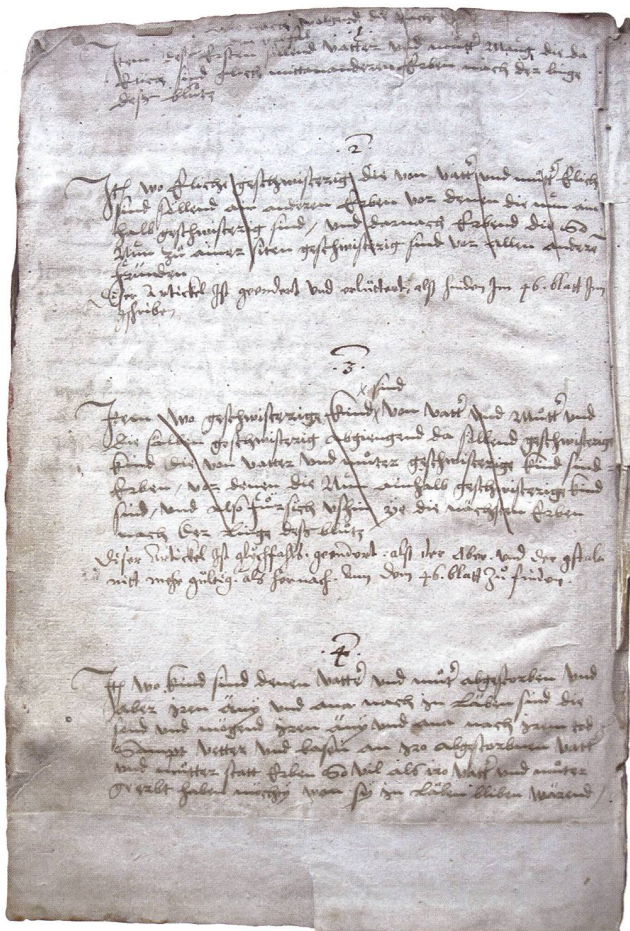 Item des Ersten sind vatter und mutter Mang die da
Eliche sind Elich mittainanderen Erben nach der linge
desz blutz
.2.
Itm wo Eliche geschwisterig die von vatter und muotter Elich
sind söllend ain anderen Erben vor denen die nun ain
halb geschwisterig sind / und darnach Erbend die So
Nun zu ainer siten geschwisterig sind vor allen andern
fründen
Diser Artickel Ist geendert und erlütteret, alsz hinden Im 46. blatt Ins
gschriben
.3.
sind
Item wo geschwisterige kind von vatter und Mutter und
die selben geschwisterig abgiengend da söllend geschwisterige
kind die von vatter und muoter geschwisterige kind sind
Erben / vor denen die Nun ainhalb geschwisterige kind
sind / und also für sich ushin ye die nächsten Erben
nach Der Linge desz blutz
Diser Artickel Ist glychfalls geendert. alsz der Aber. und der gstalt
nitt mehr gültig. als hernach. Am dem 46. blatt Zu finden.
.4.
Itm wo kind sind denen vatter und muotter abgestorben und
aber iren Äny und ana noch in Läben sind die
sond und mögend iren Äny und ana nach irem tod
Sampt vetter und basen an iro abgestorbnen vatter
und muotter statt Erben So vil als iro vatter und muotter
Geerbt haben möchty wan sy in Läben bliben wärend /